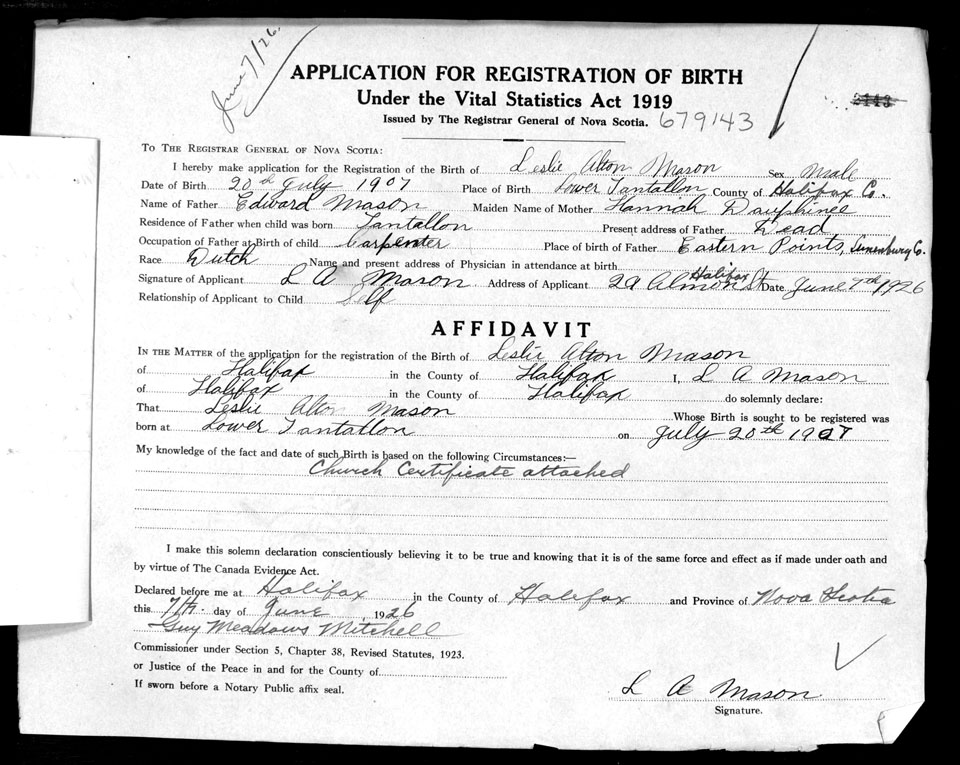 June 7/26.
APPLICATION FOR REGISTRATION OF BIRTH
Under the Vital Statistics Act 1919
Issued by The Registrar General of Nova Scotia. 679143
TO THE REGISTRAR GENERAL OF NOVA SCOTIA:
I hereby make application for the Registration of the Birth of Leslie Alton Mason Sex Male
Date of Birth 20th July 1907 Place of Birth Lower Tantallon County of Halifax Co.
Name of Father Edward Mason Maiden Name of Mother Hannah Dauphinee
Residence of Father when child was born Tantallon Present address of Father Dead
Occupation of Father at Birth of child Carpenter Place of birth of Father Eastern Points, Lunenburg Co.
Race Dutch Name and present address of Physician in attendance at birth
Signature of Applicant L A Mason Address of Applicant 29 Almon St Halifax Date June 7th 1926
Relationship of Applicant to Child Self
AFFIDAVIT
IN THE MATTER of the application for the registration of the Birth of Leslie Alton Mason
of Halifax in the County of Halifax I, L A Mason
of Halifax in the County of Halifax do solemnly declare:
That Leslie Alton Mason Whose Birth is sought to be registered was
born at Lower Tantallon on July 20th 1907
My knowledge of the fact and date of such Birth is based on the following Circumstances:—
Church Certificate attached
I make this solemn declaration conscientiously believing it to be true and knowing that it is of the same force and effect as if made under oath and
by virtue of The Canada Evidence Act.
Declared before me at Halifax in the County of Halifax and Province of Nova Scotia
this 7th. day of June, 1926
Guy Meadows Mitchell
Commissioner under Section 5, Chapter 38, Revised Statutes, 1923.
or Justice of the Peace in and for the County of
If sworn before a Notary Public affix seal.
L A Mason
Signature.